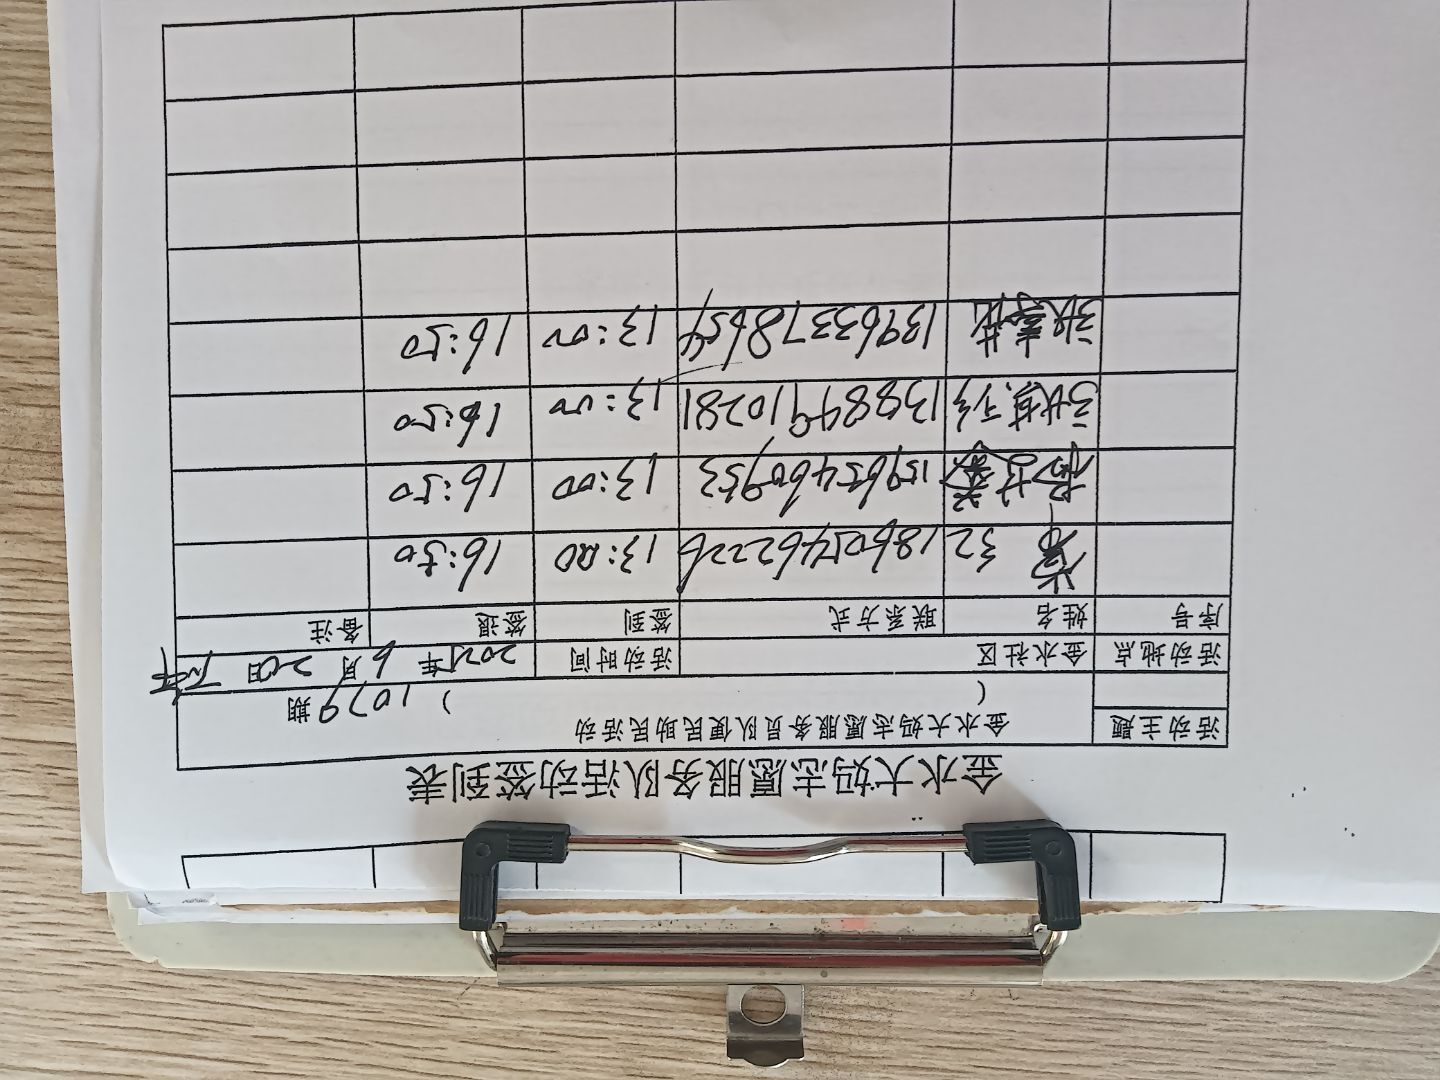 金水大妈志愿服务队活动签到表
活动主题 金水大妈志愿服务员队便民助民活动
( 1079期 )
活动地点 金水社区 活动时间 年 6月 20日 下午
序号 姓名 联系方式 签到 签退 备注
18605462226 13:00 16:50
15965460953 13:00 16:50
13884910281 13:00 16:50
13963378654 13:00 16:50